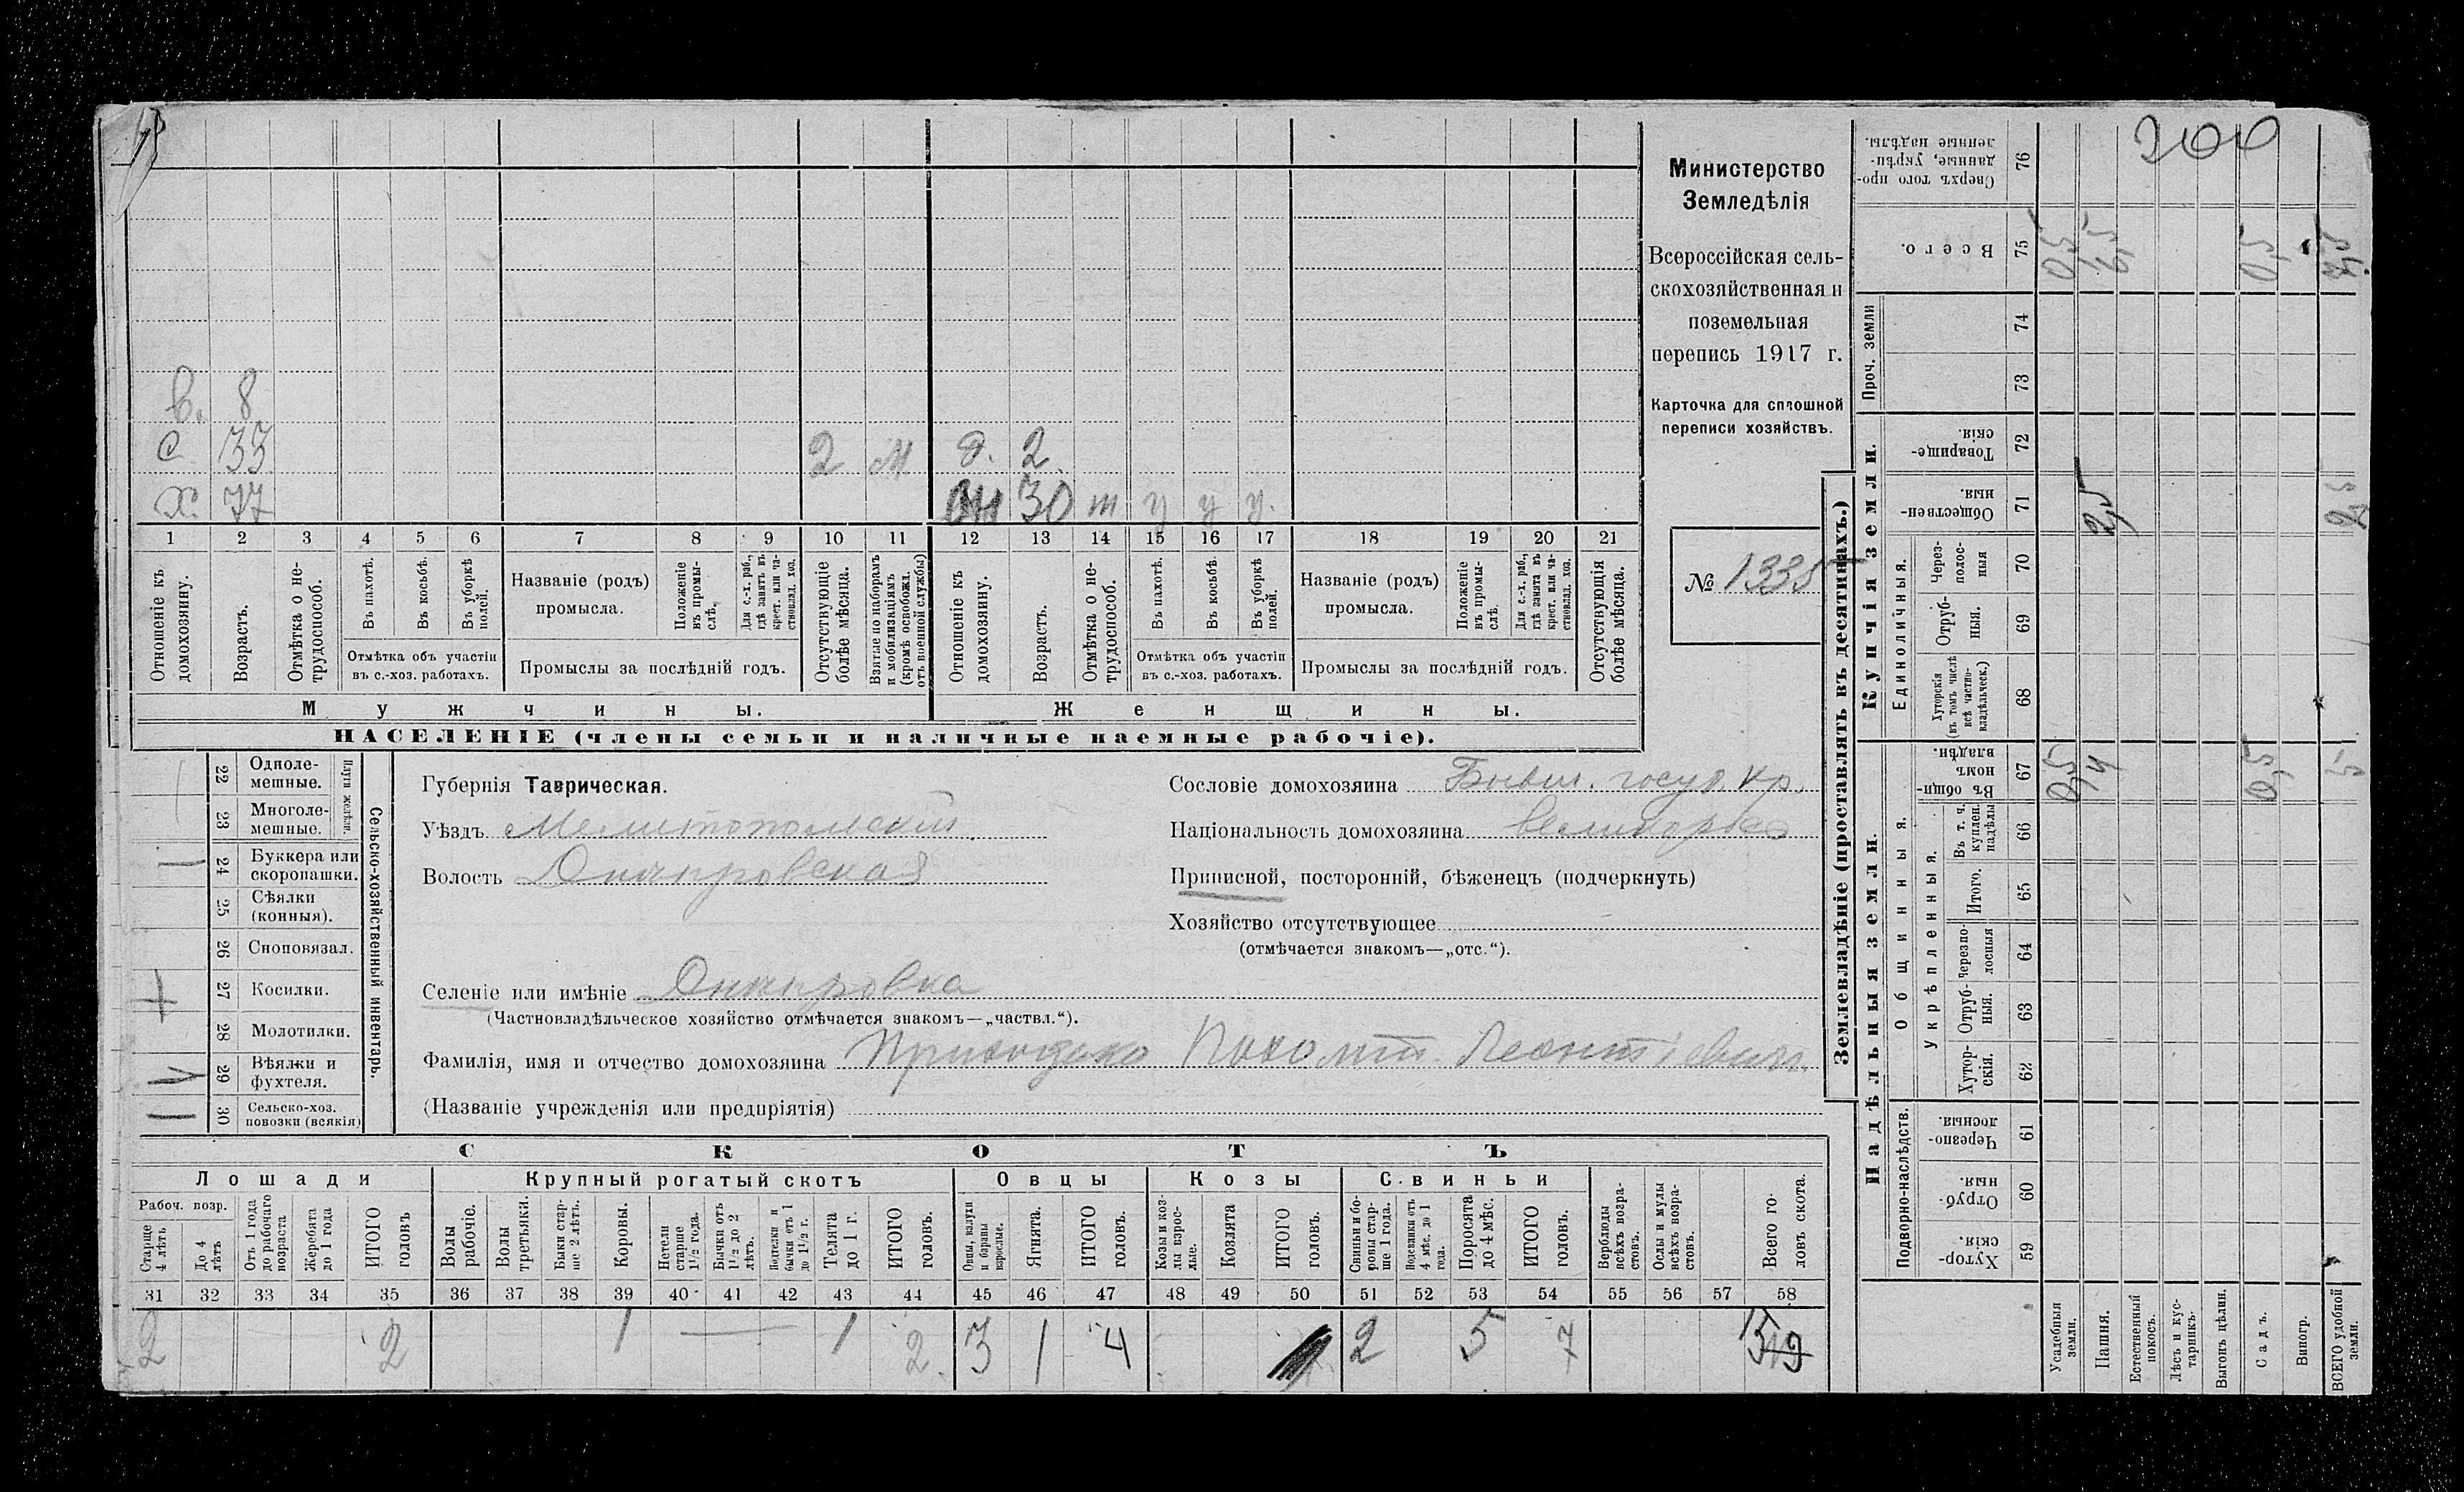 200
в. 8
с 33 2 м д. 2.
х. 77 жн 30 т у у у.
1 2 3 4 5 6 7 8 9 10 11 12 13 14 15 16 17 18 19 20 21
Отношеніе къ домохозяину.
Возрастъ.
Отмѣтка о нетрудоспособ.
Въ пахотѣ.
Въ косьбѣ.
Въ уборкѣ полей.
Отмѣтка объ участіи
въ с.-хоз. работахъ.
Названіе (родъ)
промысла.
Положеніе въ промыслѣ.
Для с.-х. раб., гдѣ занятъ въ крест. или частновлад. хоз.
Промыслы за послѣдній годъ.
Отсутствующіе болѣе мѣсяца.
Взятые по наборамъ и мобилизаціямъ (кромѣ освобожд. отъ военной службы)
Отношеніе къ домохозяину.
Возрастъ.
Отмѣтка о нетрудоспособ.
Въ пахотѣ.
Въ косьбѣ.
Въ уборкѣ полей.
Отмѣтка объ участіи
въ с.-хоз. работахъ.
Названіе (родъ)
промысла.
Положеніе въ промыслѣ.
Для с.-х. раб., гдѣ занята въ крест. или частновлад. хоз.
Промыслы за послѣдній годъ.
Отсутствующія болѣе мѣсяца.
Мужчины. Женщины.
НАСЕЛЕНІЕ (члены семьи и наличные наемные рабочіе).
Министерство
Земледѣлія
Всероссійская сель-
скохозяйственная и
поземельная
перепись 1917 г.
Карточка для сплошной
переписи хозяйствъ.
№ 1335
Сельско-хозяйственный инвентарь.
Плуги желѣзн.
22 Однолемешные.
23 Многолемешные.
24 Буккера или скоропашки.
25 Сѣялки (конныя).
26 Сноповязал.
27 Косилки.
28 Молотилки.
29 Вѣялки и фухтеля.
30 Сельско-хоз. повозки (всякія)
Губернія Таврическая.
Уѣздъ Мелитопольскій.
Волость Днѣпровская
Селеніе или имѣніе Днѣпровка
(Частновладѣльческое хозяйство отмѣчается знакомъ—„частвл.“).
Фамилія, имя и отчество домохозяина Приходько Пахомій Леонтіевич.
(Названіе учрежденія или предпріятія)
Сословіе домохозяина Бывш. госуд. кр.
Національность домохозяина великорос
Приписной, посторонній, бѣженецъ (подчеркнуть)
Хозяйство отсутствующее
(отмѣчается знакомъ—„отс.“).
СКОТЪ
Лошади Крупный рогатый скотъ Овцы Козы Свиньи
Рабоч. возр.
Старше 4 лѣтъ
До 4 лѣтъ
Отъ 1 года до рабочаго возраста
Жеребята до 1 года
ИТОГО головъ
Волы рабочіе.
Волы третьяки.
Быки старше 2 лѣтъ.
Коровы.
Нетели старше 1 1/2 года.
Бычки отъ 1 1/2 до 2 лѣтъ.
Подтелки и бычки отъ 1 до 1 1/2 г.
Телята до 1 г.
ИТОГО головъ.
Овцы, валухи и бараны взрослые.
Ягнята.
ИТОГО головъ.
Козы и козлы взрослые.
Козлята
ИТОГО головъ.
Свиньи и боровы старше 1 года.
Подсвинки отъ 4 мѣс. до 1 года.
Поросята до 4 мѣс.
ИТОГО головъ.
Верблюды всѣхъ возрастовъ.
Ослы и мулы всѣхъ возрастовъ.
Всего головъ скота.
31 32 33 34 35 36 37 38 39 40 41 42 43 44 45 46 47 48 49 50 51 52 53 54 55 56 57 58
2 2 1 — 1 2. 3 1 4 2 5 7 15
Землевладѣніе (проставлять въ десятинахъ.)
Купчія земли.
Надѣльныя земли.
Проч. земли
Единоличныя.
Общинныя.
Укрѣпленныя.
Подворно-наслѣдств.
Сверхъ того проданные, укрѣпленные надѣлы. 76
Всего. 75 0,5 6,5 0,5 7,5
74
73
Товарищескія. 72
Общественныя. 71 2,5 2,5
Черезполосныя 70
Отрубныя. 69
Хуторскія (въ томъ числѣ всѣ частновладѣльческ.) 68
Въ общинномъ владѣн. 67 0,5 4 0,5 5
Въ т. ч. куплен. надѣлы 66
Итого. 65
Черезполосныя 64
Отрубныя. 63
Хуторскія. 62
Черезполосныя. 61
Отрубныя. 60
Хуторскія. 59
Усадебныя земли.
Пашня.
Естественный покосъ.
Лѣсъ и кустарникъ.
Выгонъ цѣлин.
Садъ.
Виногр.
ВСЕГО удобной земли.